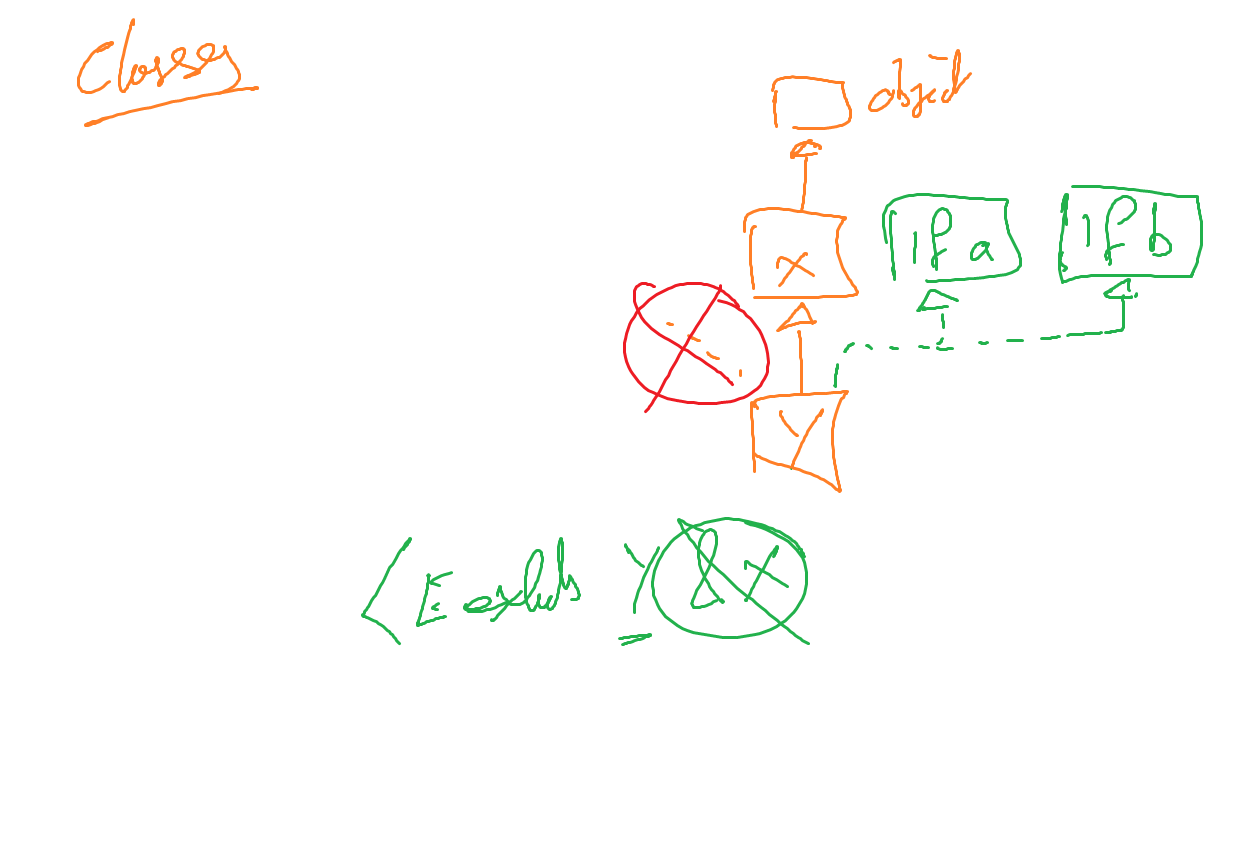 Classes
object
X
if a
if b
Y
<E extends Y & X